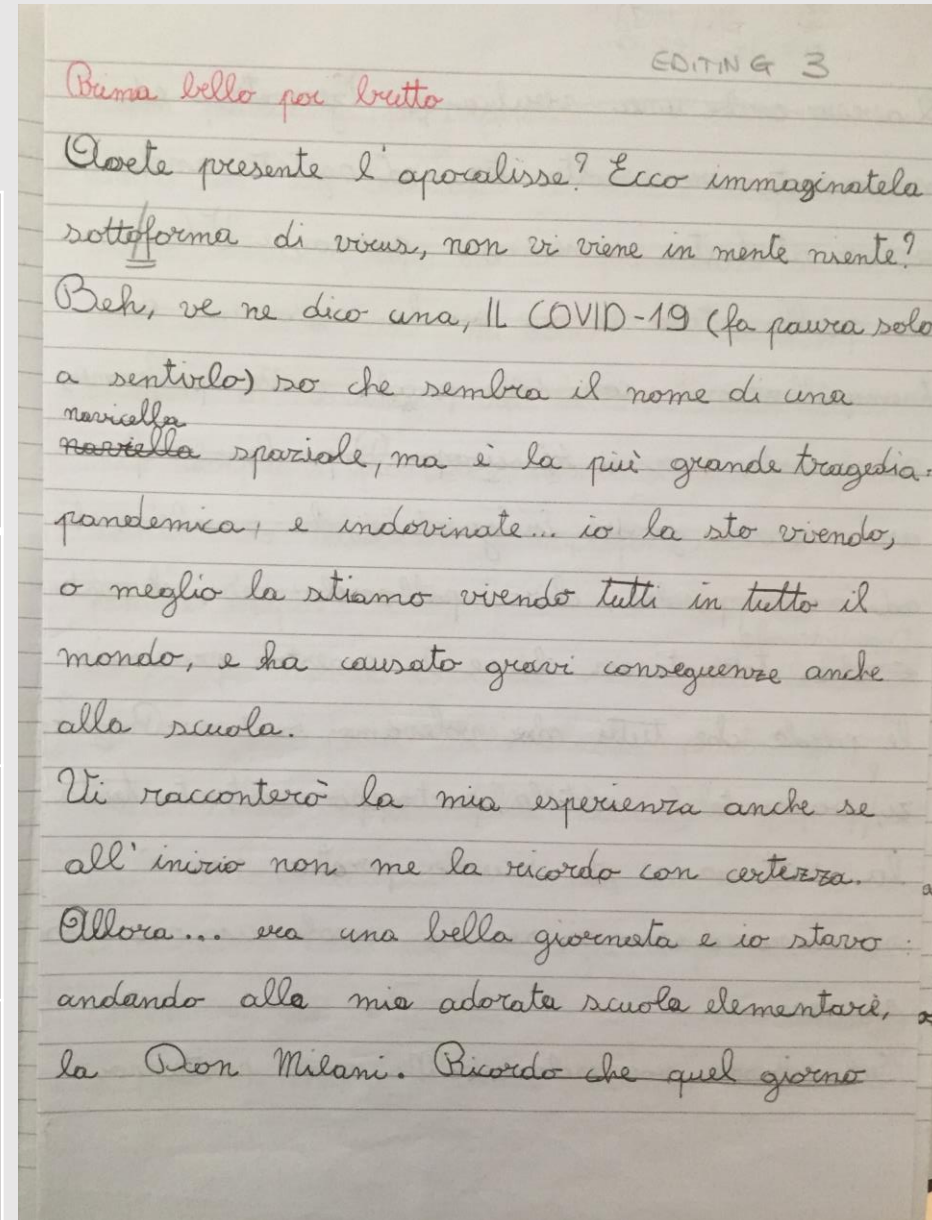 EDITING 3
Prima bello poi brutto
Avete presente l'apocalisse? Ecco immaginatela
sottoforma di virus, non vi viene in mente niente?
Beh, ve ne dico una, IL COVID-19 (fa paura solo
a sentirlo) so che sembra il nome di una
navicella
naviella spaziale, ma è la più grande tragedia
pandemica, e indovinate... io la sto vivendo,
o meglio la stiamo vivendo tutti in tutto il
mondo, e ha causato gravi conseguenze anche
alla scuola.
Vi racconterò la mia esperienza anche se
all'inizio non me la ricordo con certezza.
Allora... era una bella giornata e io stavo
andando alla mia adorata scuola elementare,
la Don Milani. Ricordo che quel giorno